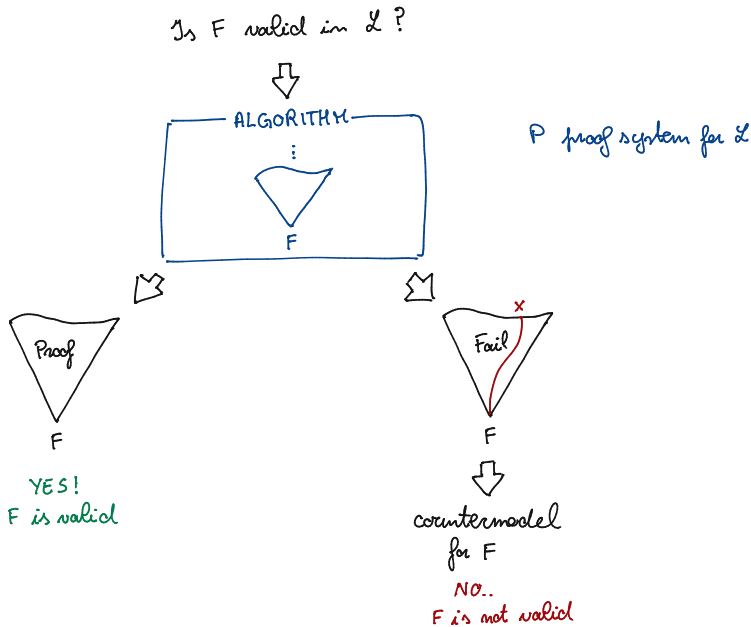 Is F valid in L ?
ALGORITHM
P proof system for L
⋮
F
Proof
F
YES!
F is valid
x
Fail
F
countermodel
for F
NO..
F is not valid